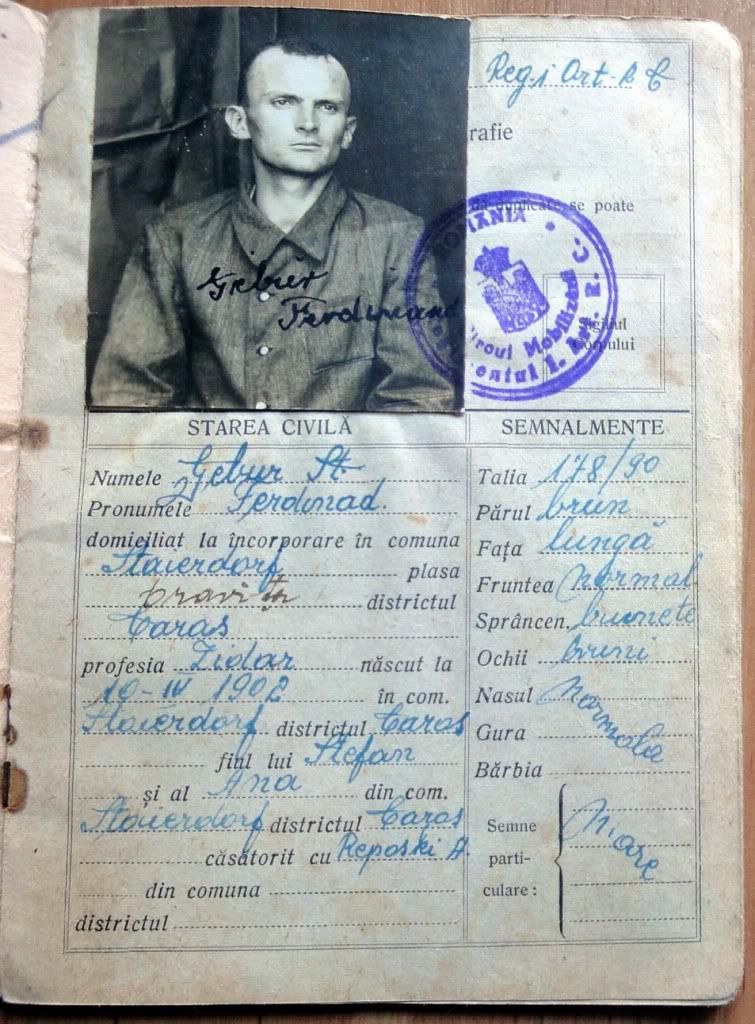 Reg. 1 Art. R C
rafie
duplicate, se poate
ROMÂNIA
Biroul Mobilizării
Regimentul 1. Art. R. C.
Sigiliul
Corpului
Gebur
Ferdinand
STAREA CIVILĂ
Numele Gebur St.
Pronumele Ferdinad.
domiciliat la încorporare în comuna
Staierdorf plasa
Oravița districtul
Caras
profesia Zidar născut la
10-IV 1902 în com.
Staierdorf districtul Caras
fiul lui Stefan
și al Ana din com.
Staierdorf districtul Caras
căsătorit cu Reposki A.
din comuna
districtul
SEMNALMENTE
Talia 178/90
Părul brun
Fața lungă
Fruntea normal
Sprâncen. brunete
Ochii bruni
Nasul normala
Gura
Bărbia
Semne
parti-
culare: N. are